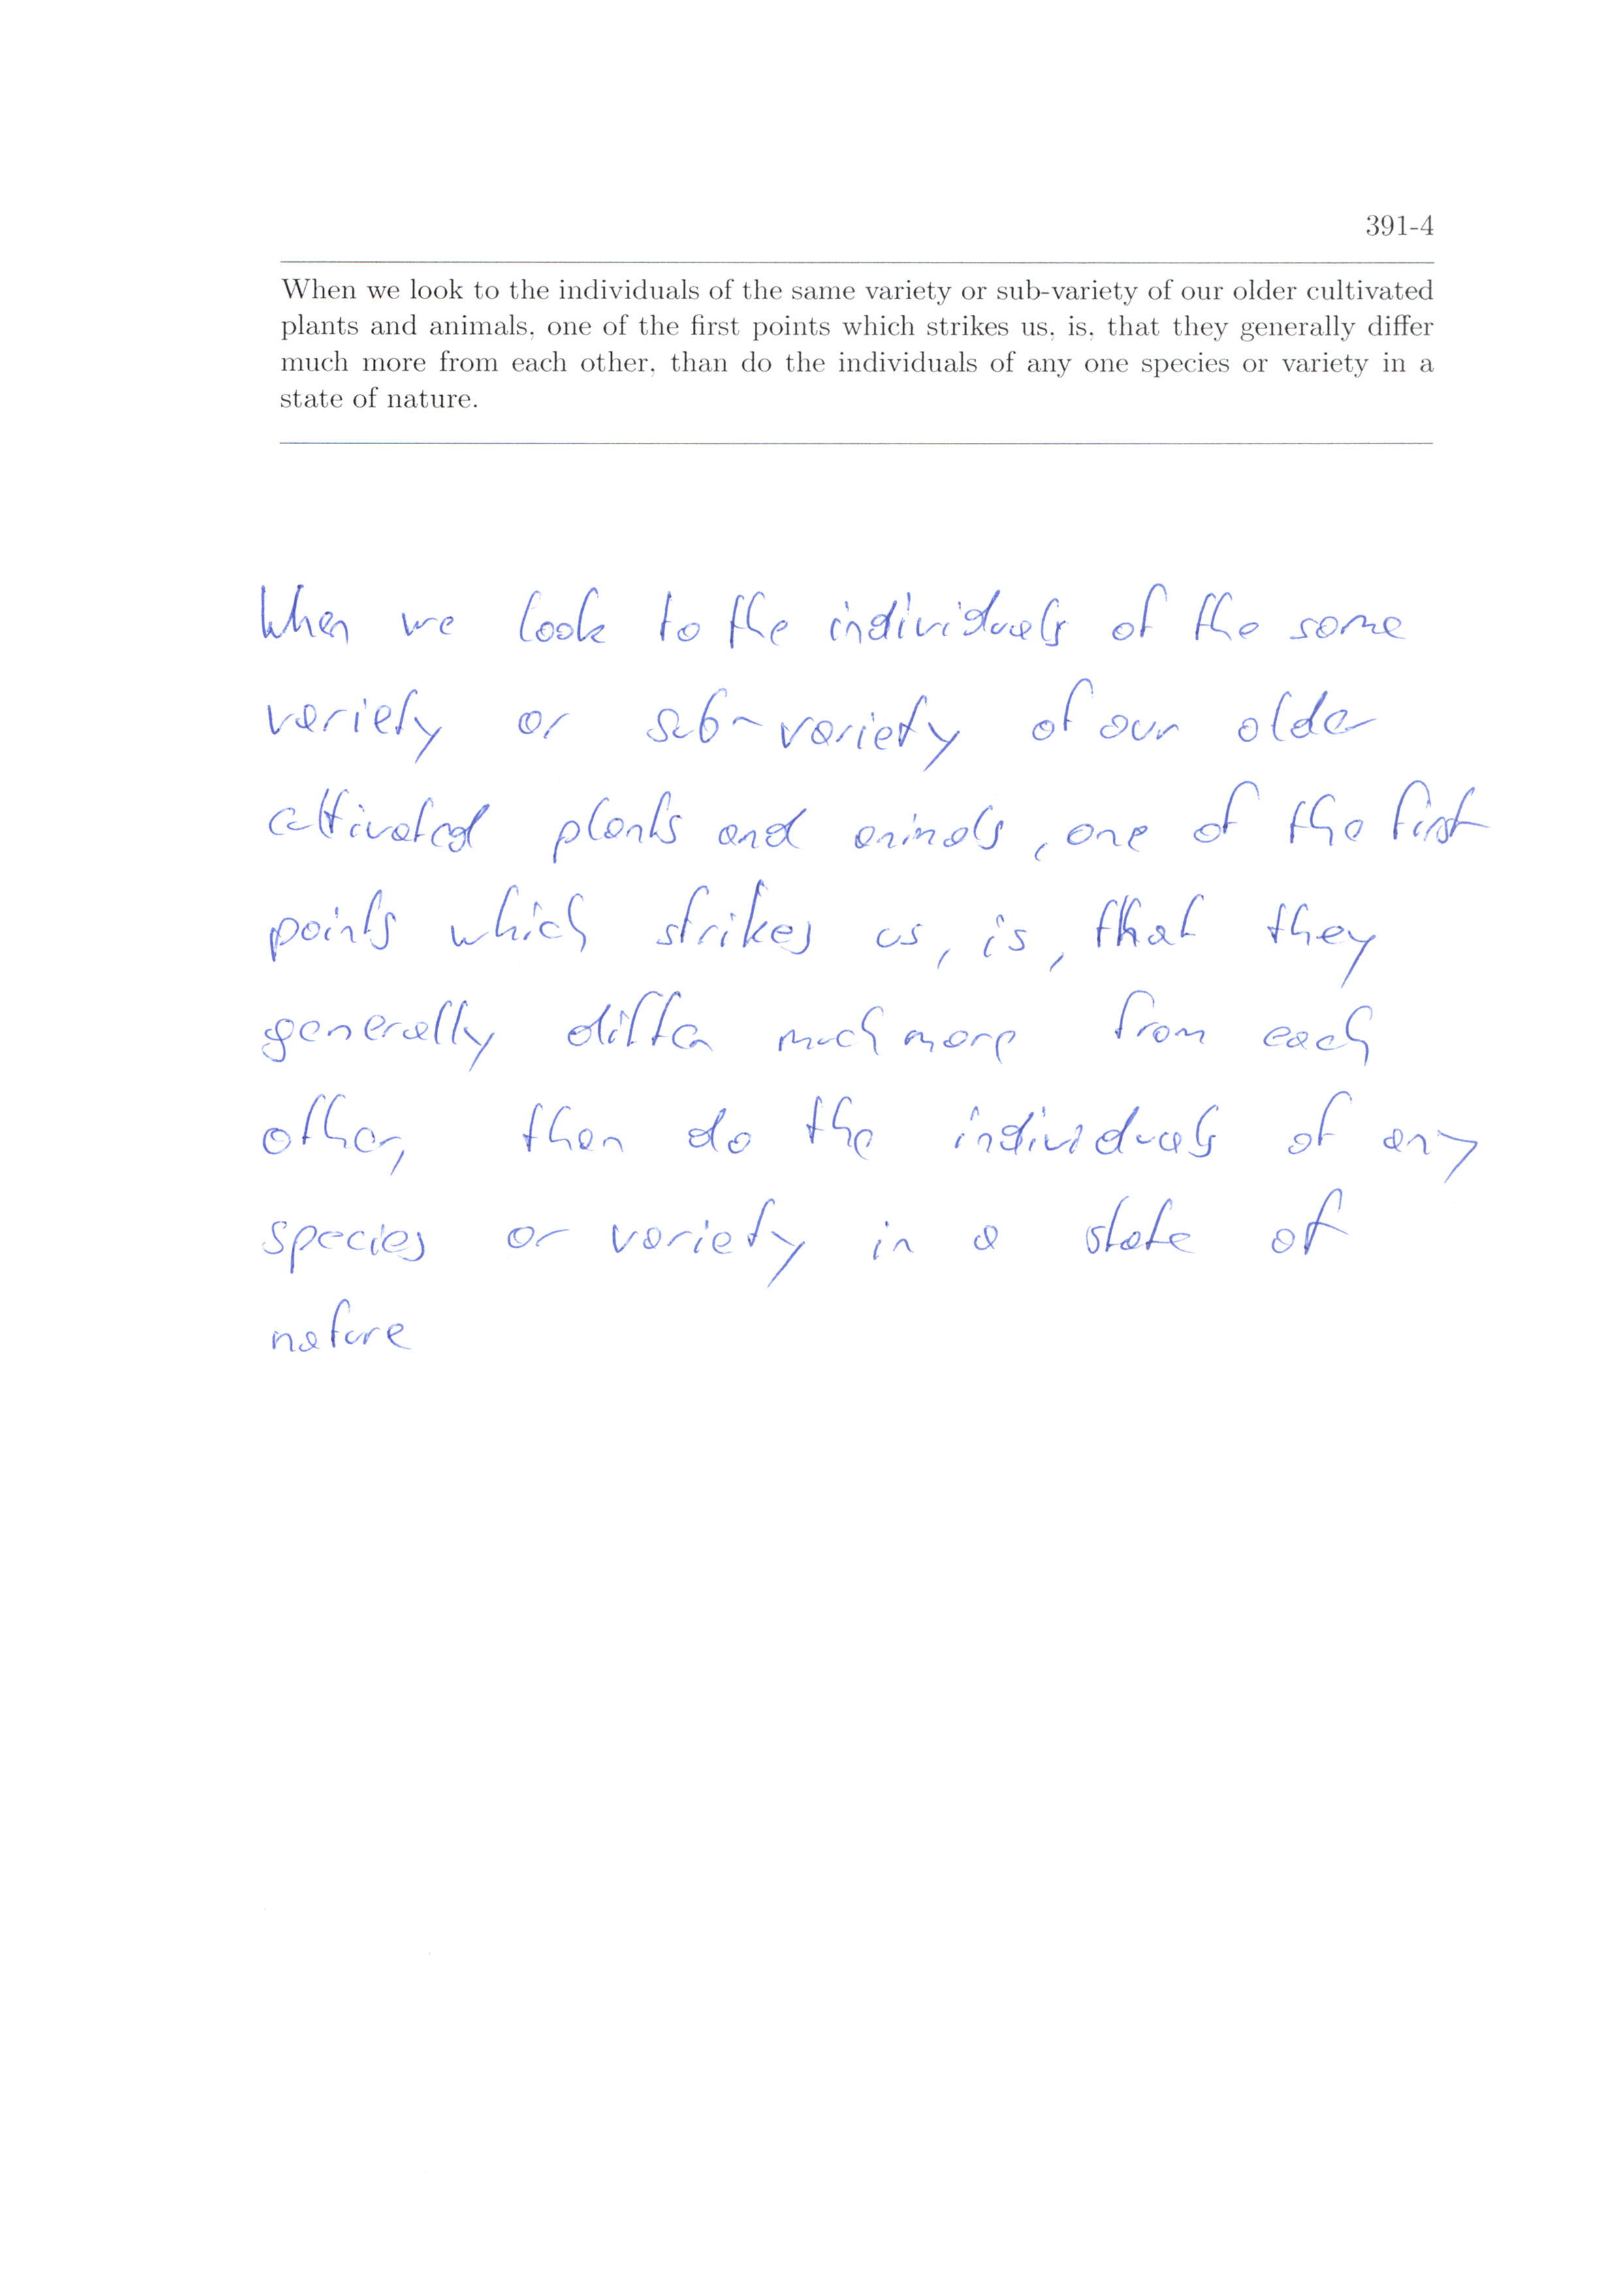 391-4
When we look to the individuals of the same variety or sub-variety of our older cultivated
plants and animals, one of the first points which strikes us, is, that they generally differ
much more from each other, than do the individuals of any one species or variety in a
state of nature.
When we look to the individuals of the same
variety or sub-variety of our older
cultivated plants and animals, one of the first
points which strikes us, is, that they
generally differ much more from each
other, than do the individuals of any
species or variety in a state of
nature